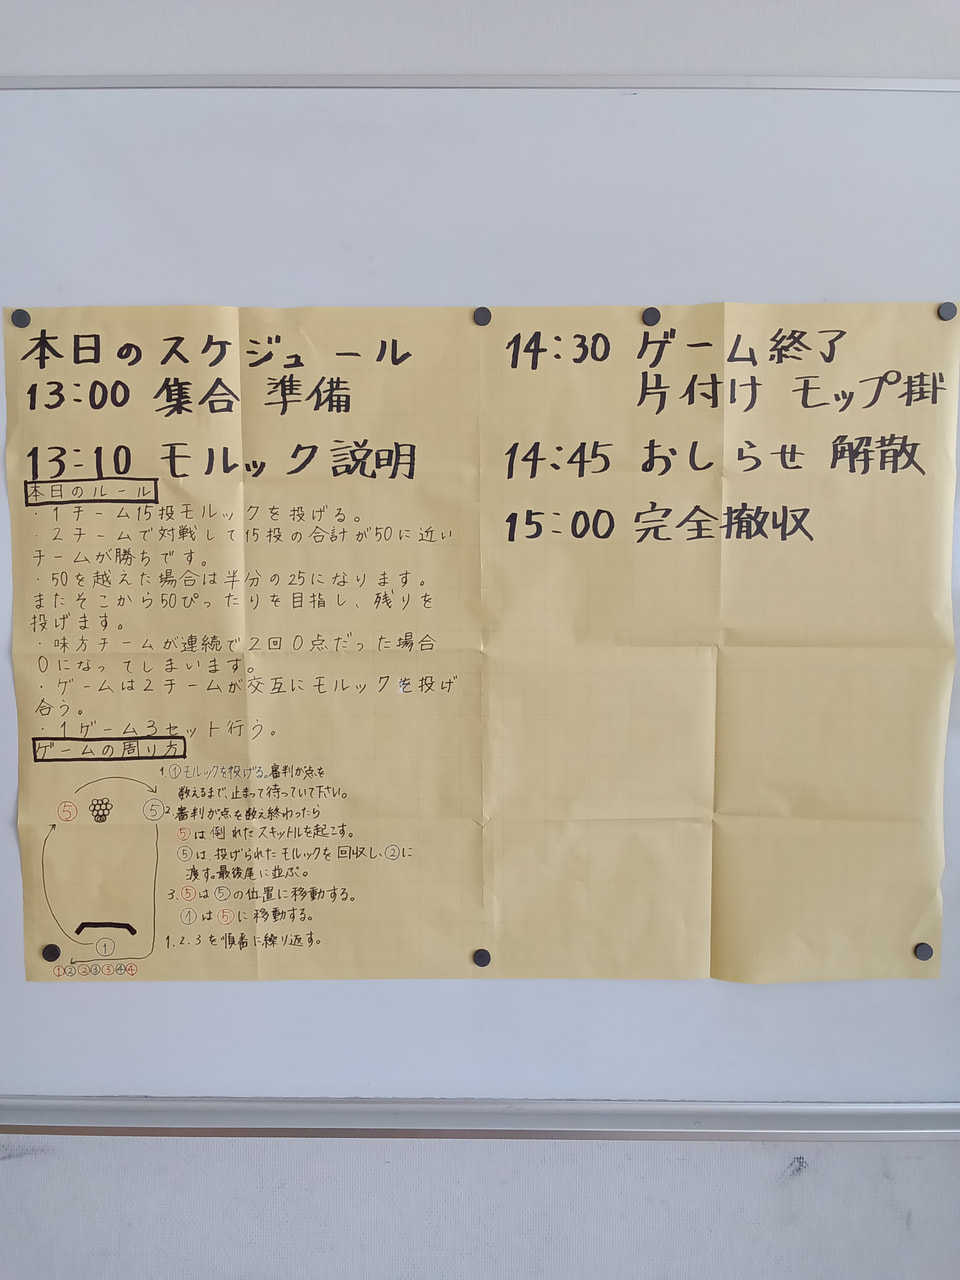 本日のスケジュール
13:00 集合 準備
13:10 モルック説明
本日のルール
・1チーム15投モルックを投げる。
・2チームで対戦して15投の合計が50に近い
チームが勝ちです。
・50を越えた場合は半分の25になります。
またそこから50ぴったりを目指し、残りを
投げます。
・味方チームが連続で2回0点だった場合
0になってしまいます。
・ゲームは2チームが交互にモルックを投げ
合う。
・1ゲーム3セット行う。
ゲームの周り方
⑤ ⑤
①
①②②③③④④
1.①モルックを投げる。審判が点を
数えるまで、止まって待っていて下さい。
2.審判が点を数え終わったら
⑤は倒れたスキットルを起こす。
⑤は投げられたモルックを回収し、②に
渡す。最後尾に並ぶ。
3.⑤は⑤の位置に移動する。
①は⑤に移動する。
1.2.3を順番に繰り返す。
14:30 ゲーム終了
片付け モップ掛
14:45 おしらせ 解散
15:00 完全撤収